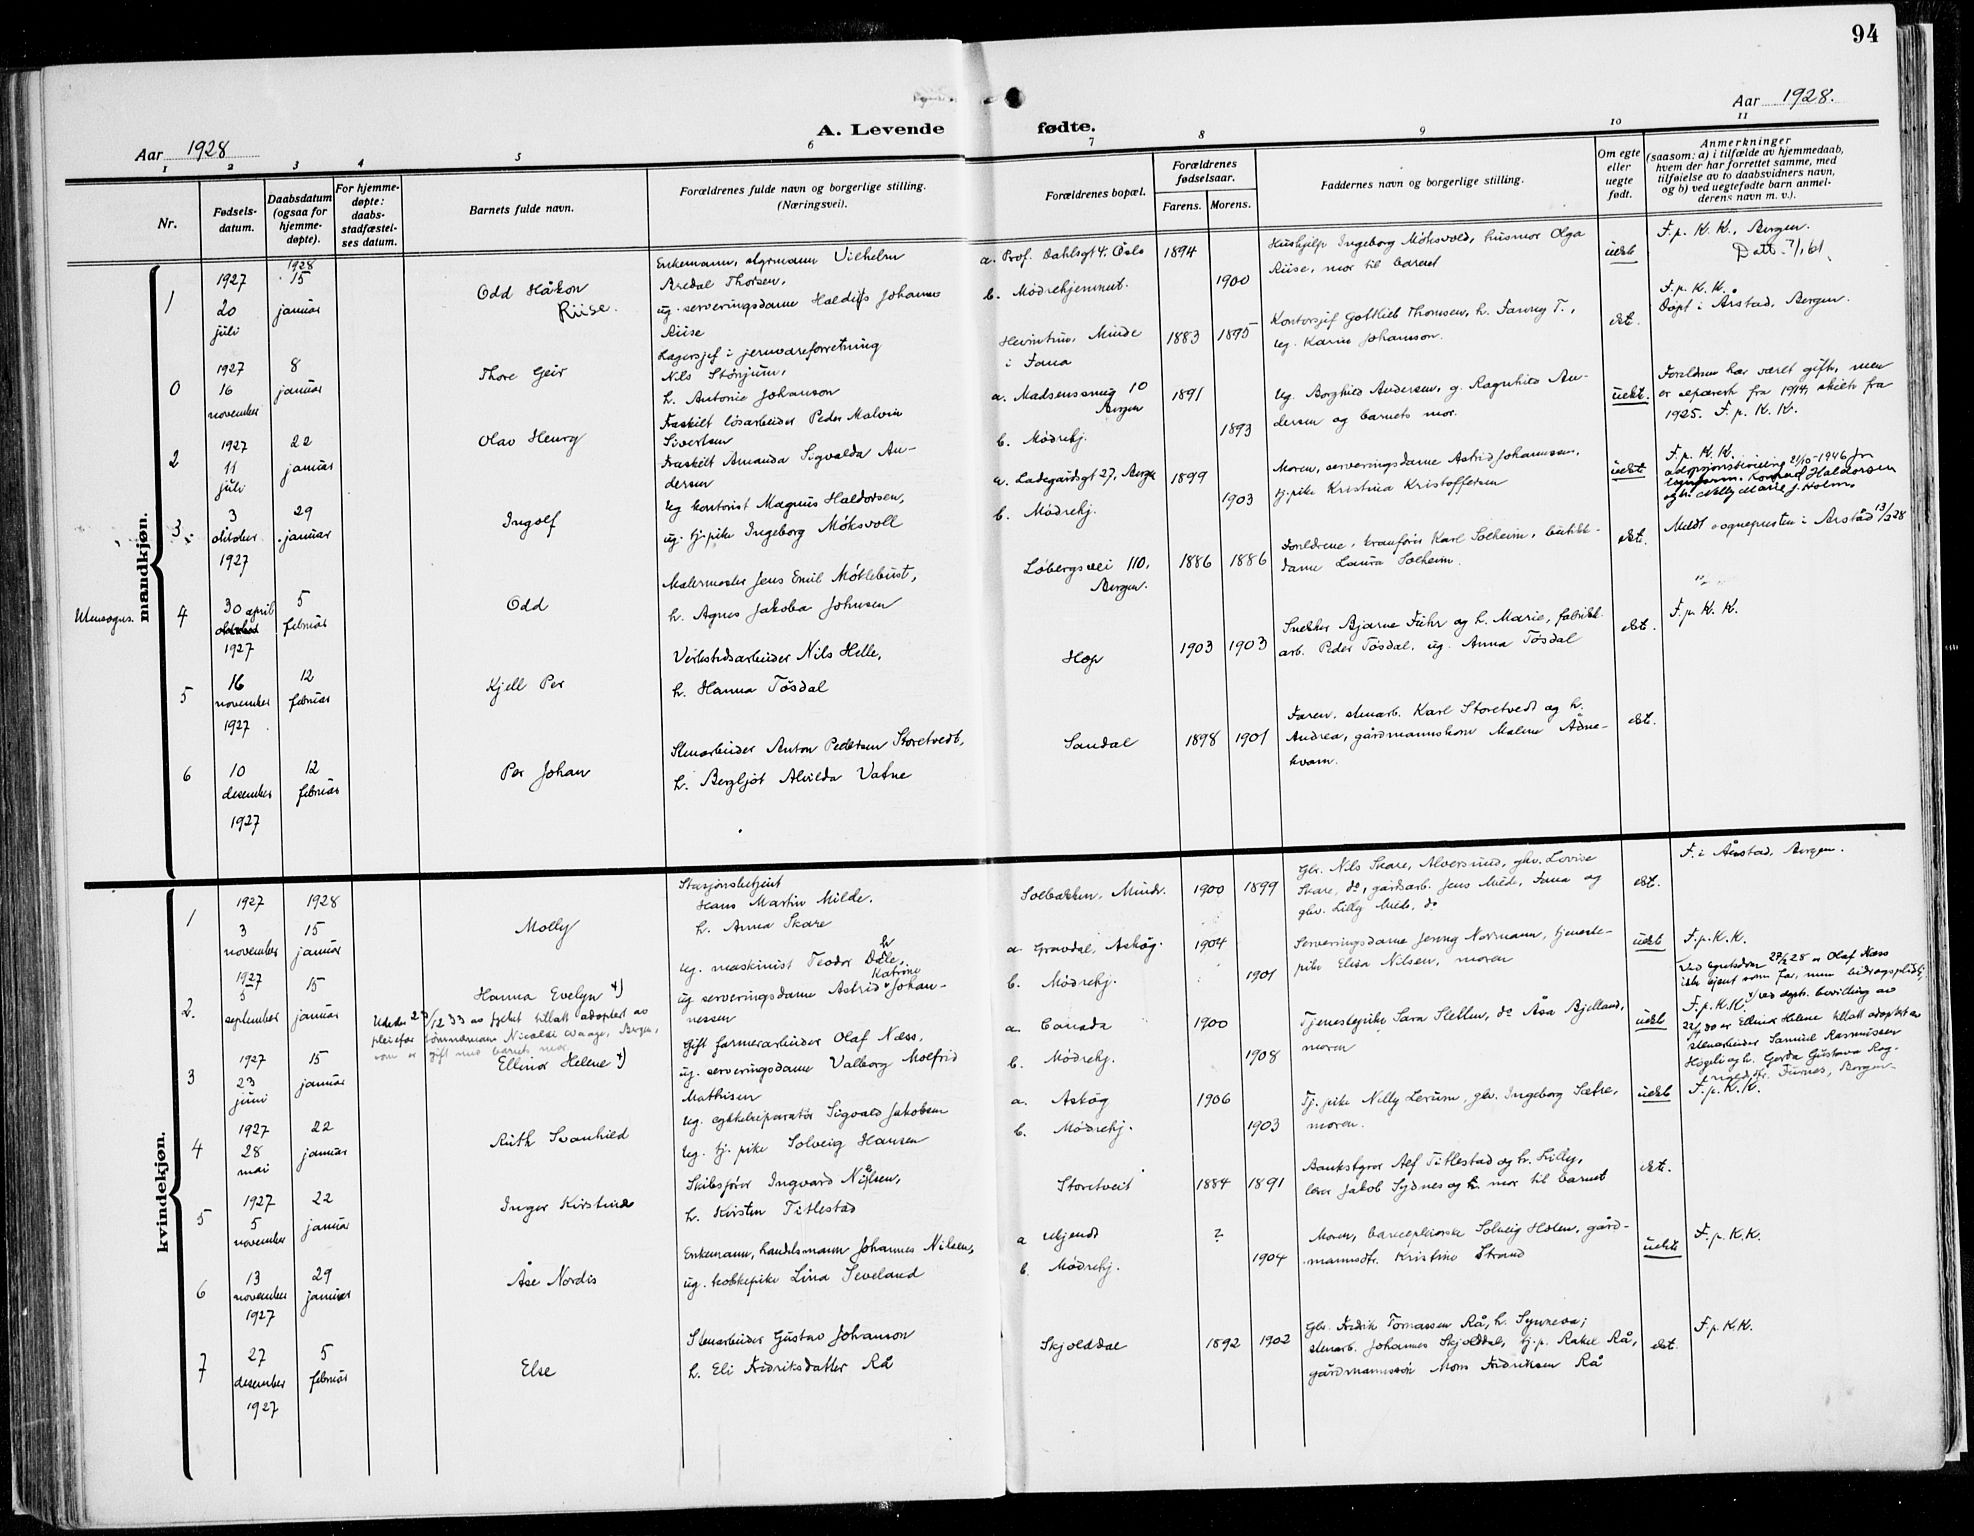 94
Aar 1928
A. Levende fødte.
Aar 1928.
1 2 3 4 5 6 7 8 9 10 11
Nr.
Fødsels-
datum.
Daabsdatum
(ogsaa for
hjemme-
døpte).
For hjemme-
døpte:
daabs-
stadfæstel-
ses datum.
Barnets fulde navn.
Forældrenes fulde navn og borgerlige stilling.
(Næringsvei).
Forældrenes bopæl.
Forældrenes
fødselsaar.
Farens. Morens.
Faddernes navn og borgerlige stilling.
Om egte
eller
uegte
født.
Anmerkninger
(saasom: a) i tilfælde av hjemmedaab,
hvem der har forrettet samme, med
tilføielse av to daabsvidners navn,
og b) ved uegtefødte barn anmel-
derens navn m. v.).
mandkjøn.
1
1927
20
juli
1928
15
januar
Odd Håkon
Riise.
Enkemann, styrmann Vilhelm
Bredal Thorsen,
ug. serveringsdame Haldis Johanne
Riise
a. Prof. Dahlsgt 4. Oslo
b. Mødrehjemmet.
1894
1900
Hushjelp Ingeborg Møksvold, husmor Olga
Riise, mor til barnet
uekte
F. p. K. K., Bergen.
Datt. 7/1 61
0
1927
16
november
8
januar
Thore Geir
Lagersjef i jernvareforretning
Nils Stønjum,
h. Antonie Johanson
Heimtun, Minde
i Fana
1883
1895
Kontorsjef Gottlieb Thomsen, h. Fanny T.,
ug. Karin Johanson.
ekte.
F. p. K. K.
Døpt i Årstad, Bergen.
2
1927
11
juli
22
januar
Olav Henry
Fraskilt løsarbeider Peder Malvin
Sivertsen
Fraskilt Amanda Sigvalda An-
dersen
a. Madsensmug 10
Bergen
b. Mødrehj.
1891
1893
Ug. Borghild Andersen, g. Ragnhild An-
dersen og barnets mor.
uekte.
Foreldrene har været gift, men
er separert fra 1914, skilt fra
1925. F. p. K. K.
3
3
oktober
1927
29
januar
Ingolf
Ug kontorist Magnus Haldorsen,
ug. tj.pike Ingeborg Møksvoll
a. Ladegårdsgt 27, Bergen
b. Mødrehj.
1899
1903
Moren, serveringsdame Astrid Johannsen,
tj.pike Kristina Kristoffersen
uekte
F. p. K. K.
adopsjonsbevilling 21/10-1946 for
Konrad Haldorsen
og h. Nelly Marie f. Holm.
Utensogns.
4
30 april
1927
5
februar
Odd
Malermester Jens Emil Møklebust,
h. Agnes Jakoba Johnsen
Løbergsvei 110,
Bergen.
1886
1886
Foreldrene, Karl Solheim, butikk-
dame Laura Solheim.
ekte.
Meldt sognepresten i Årstad 13/2 28
5
16
november
1927
12
februar
Kjell Per
Verkstedsarbeider Nils Helle,
h. Hanna Tøsdal
Hop
1903
1903
Snekker Bjarne Fuhr og h. Marie, fabrikk-
arb. Peder Tøsdal, ug. Anna Tøsdal
ekte.
F. p. K. K.
6
10
desember
1927
12
februar
Per Johan
Stenarbeider Anton Pedersen Storetvedt,
h. Bergljot Alvilda Vatne
Sandal
1898
1901
Faren, stenarb. Karl Storetvedt og h.
Andrea, gårdmannskone Malene Ådne-
kvam.
ekte.
kvindekjøn.
1
1927
3
november
1928
15
januar
Molly
Stasjonsbetjent
Hans Martin Milde,
h. Anna Skare
Solbakken, Minde.
1900
1899
Gbr. Nils Skare, Alversund, gbr. Lovise
Skare, do, gårdsarb. Jens Milde, Fana og
gbv. Lilly Milde, do
ekte.
F. i Årstad, Bergen.
2.
1927
5
september
15
januar
Hanna Evelyn +)
Under 23/12 33 av fylket tillatt adoptert av
pleiefar tømmermann Nicolai Waage, Bergen,
som er gift med barnets mor.
Ug. maskinist Teodor Dale,
ug serveringsdame Astrid Katrine Johan-
nessen
a. Gravdal, Askøy.
b. Mødrehj.
1904
1901
Serveringsdame Jenny Normann, tjeneste-
pike Elisa Nilsen, moren
uekte
F. p. K. K.
3
1927
23
juni
15
januar
Ellinor Helene +)
Gift farmerarbeider Olaf Næss,
ug. serveringsdame Valborg Molfrid
Mathisen
a. Canada
b. Mødrehj.
1900
1908
Tjenestepike Sara Sletten, do Åsa Bjelland,
moren
uekte
Ved 28 er Olaf Næss
ikke kjent som far, men bidragspliktig
F. p. K. K. +) ved depts. bevilling av
22/4 30 er Ellinor Helene tillatt adoptert av
stenarbeider Samuel Rasmussen
Høgeli og h. Gerda Gustava Rag-
Furnes, Bergen.
4
1927
28
mai
22
januar
Ruth Svanhild
Ug. sykkelreparatør Sigvald Jakobsen
Ug. tj. pike Solveig Hansen
a. Askøy
b. Mødrehj.
1906
1903
Tj. pike Nelly Lerum, gbv. Ingeborg Sætre,
moren.
uekte
F. p. K. K.
5
1927
5
november
22
januar
Inger Kirstine
Skibsfører Ingvard Nilsen,
h. Kirsten Titlestad
Storetveit
1884
1891
Bankstyrer Alf Titlestad og h. Lilly,
lærer Jakob Sydnes og h. mor til barnet
ekte.
6
13
november
1927
29
januar
Åse Nordis
Enkemann, handelsmann Johannes Nilsen,
ug. kokkepike Lina Seveland
a ukjendt
b. Mødrehj.
?
1904
Moren, barnepleierske Solveig Holen, gård-
mannsdtr. Kristine Strand
uekte
F. p. K. K.
7
27
desember
1927
5
februar
Else
Stenarbeider Gustav Johanson
h. Eli Fredriksdatter Rå
Skjolddal
1892
1902
Gbr. Fredrik Tomassen Rå, h. Synneva;
stenarb. Johannes Skjolddal, tj.p. Rakel Rå,
gårdmannssøn Mons Fredriksen Rå
ekte.
F. p. K. K.